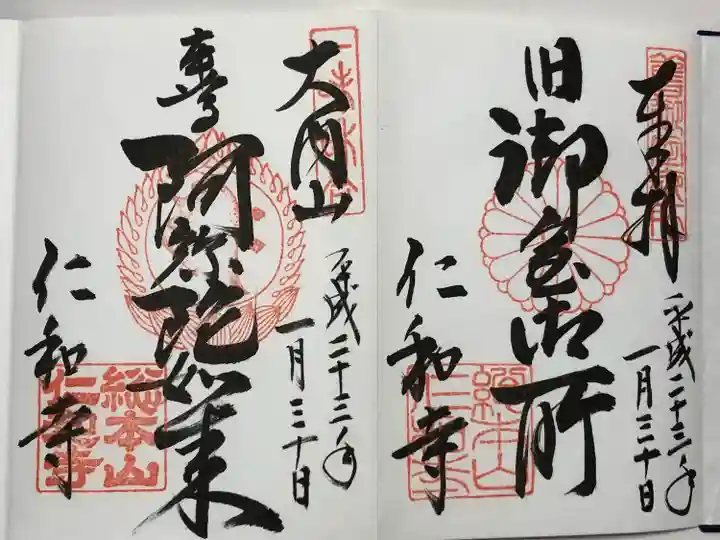 奉拝
平成二十三年
一月三十日
旧御室御所
仁和寺
大内山
平成二十三年
一月三十日
阿弥陀如来
仁和寺
総本山
仁和寺